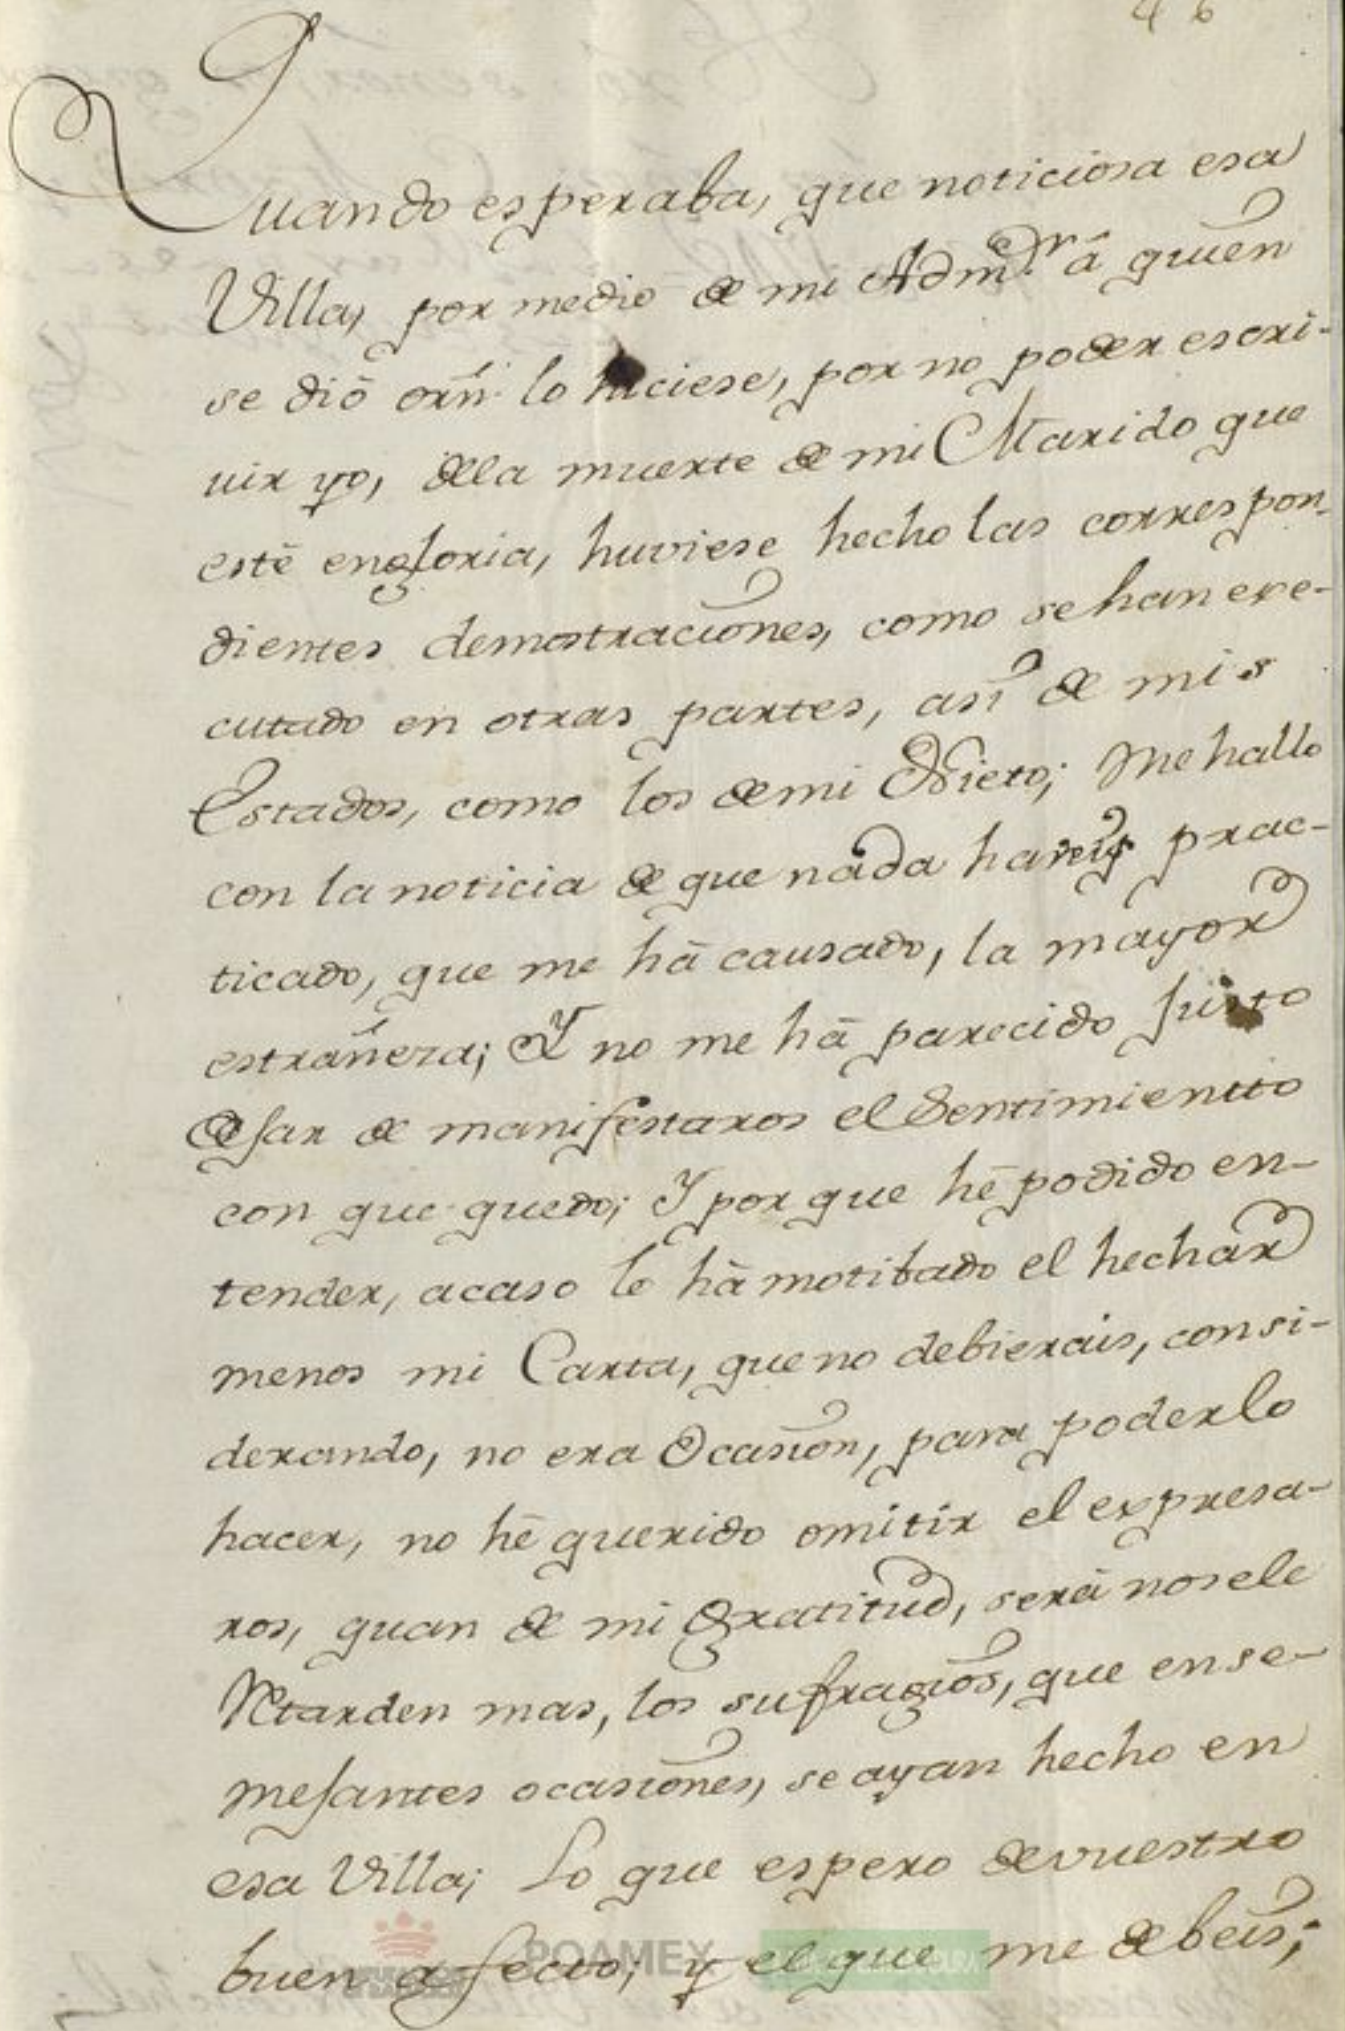 46
Quando esperaba, que noticiosa esa
Villa, por medio de mi Adm.ʳ â quien
se diô orñ. lo hiciese, por no poder escri-
uir yo, dela muerte de mi Marido que
estê engloria, huviese hecho las correspon-
dientes demostraciones, como sehan exe-
cutado en otras partes, asi de mis
Estados, como los demi Nieto; Me hallo
con la noticia de que nada haveis prac-
ticado, que me hâ causado, la mayor
estrañeza; Y no me hâ parecido Justo
dejar de manifestaros el Sentimientto
con que quedo; Y por que hê podido en-
tender, acaso lo hà motibado el hechar
menos mi Carta, que no debierais, consi-
derando, no era Ocasion, para poderlo
hacer, no hê querido omitir el expresa-
ros, quan de mi Gratitud, serâ nosele
Retarden mas, los sufragios, que ense-
mejantes ocasiones, se ayan hecho en
esa Villa; Lo que espero devuestro
buen afecto; y el que me debeis;
POAMEX